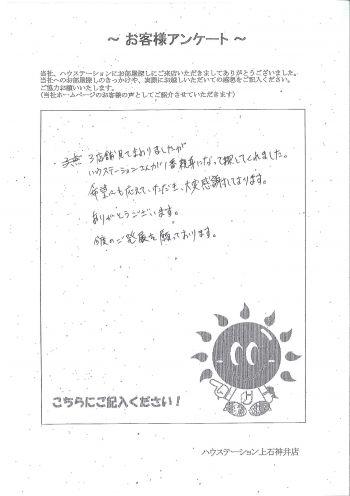 ～ お客様アンケート ～
当社、ハウステーションにお部屋探しにご来店いただきましてありがとうございました。
当社へのお部屋探しのきっかけや、実際にお越しいただいての感想をご記入ください。
ご協力お願いいたします。
(当社ホームページのお客様の声としてご紹介させていただきます)
3店舗見てまわりましたが
ハウステーションさんが1番親身になって探してくれました。
希望にも応えていただき、大変感謝しております。
ありがとうございます。
今後のご発展を願っております。
こちらにご記入ください！
ハウステーション上石神井店